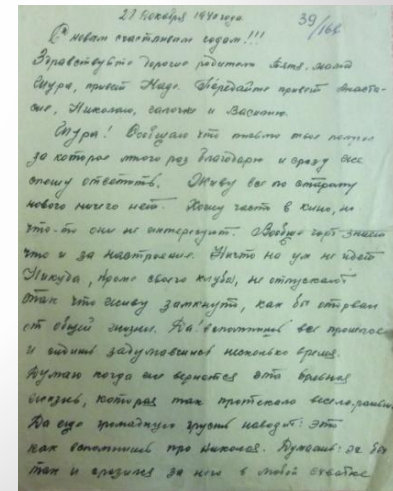 27 Декабря 1940 года.
39/166
С новым счастливым годом!!!
Здравствуйте дорогие родители Тятя, мама
Шура, привет Наде. Передайте привет Анаста-
сие, Николаю, галочке и Василию.
Шура! Сообщаю что письмо твое получил
за которое много раз благодарю и сразу же
спешу ответить. Живу все по старому
нового ничего нет. Хожу часто в кино, но
что-то они не интересуют. Вообще чорт знает
что и за настроение. Ничто на ум не идет
Никуда, кроме своего клуба, не отпускают
так что живу замкнут, как бы оторван
от общей жизни. Да! вспомнишь все прошлое
и сидишь задумавшись несколько время.
Думаю когда же вернется эта вольная
жизнь, которая так протекала весело,
Да еще громадную грусть наводит: это
как вспомнишь про Николая. Думаешь: эх бы
так и сразился за него в любой схватке